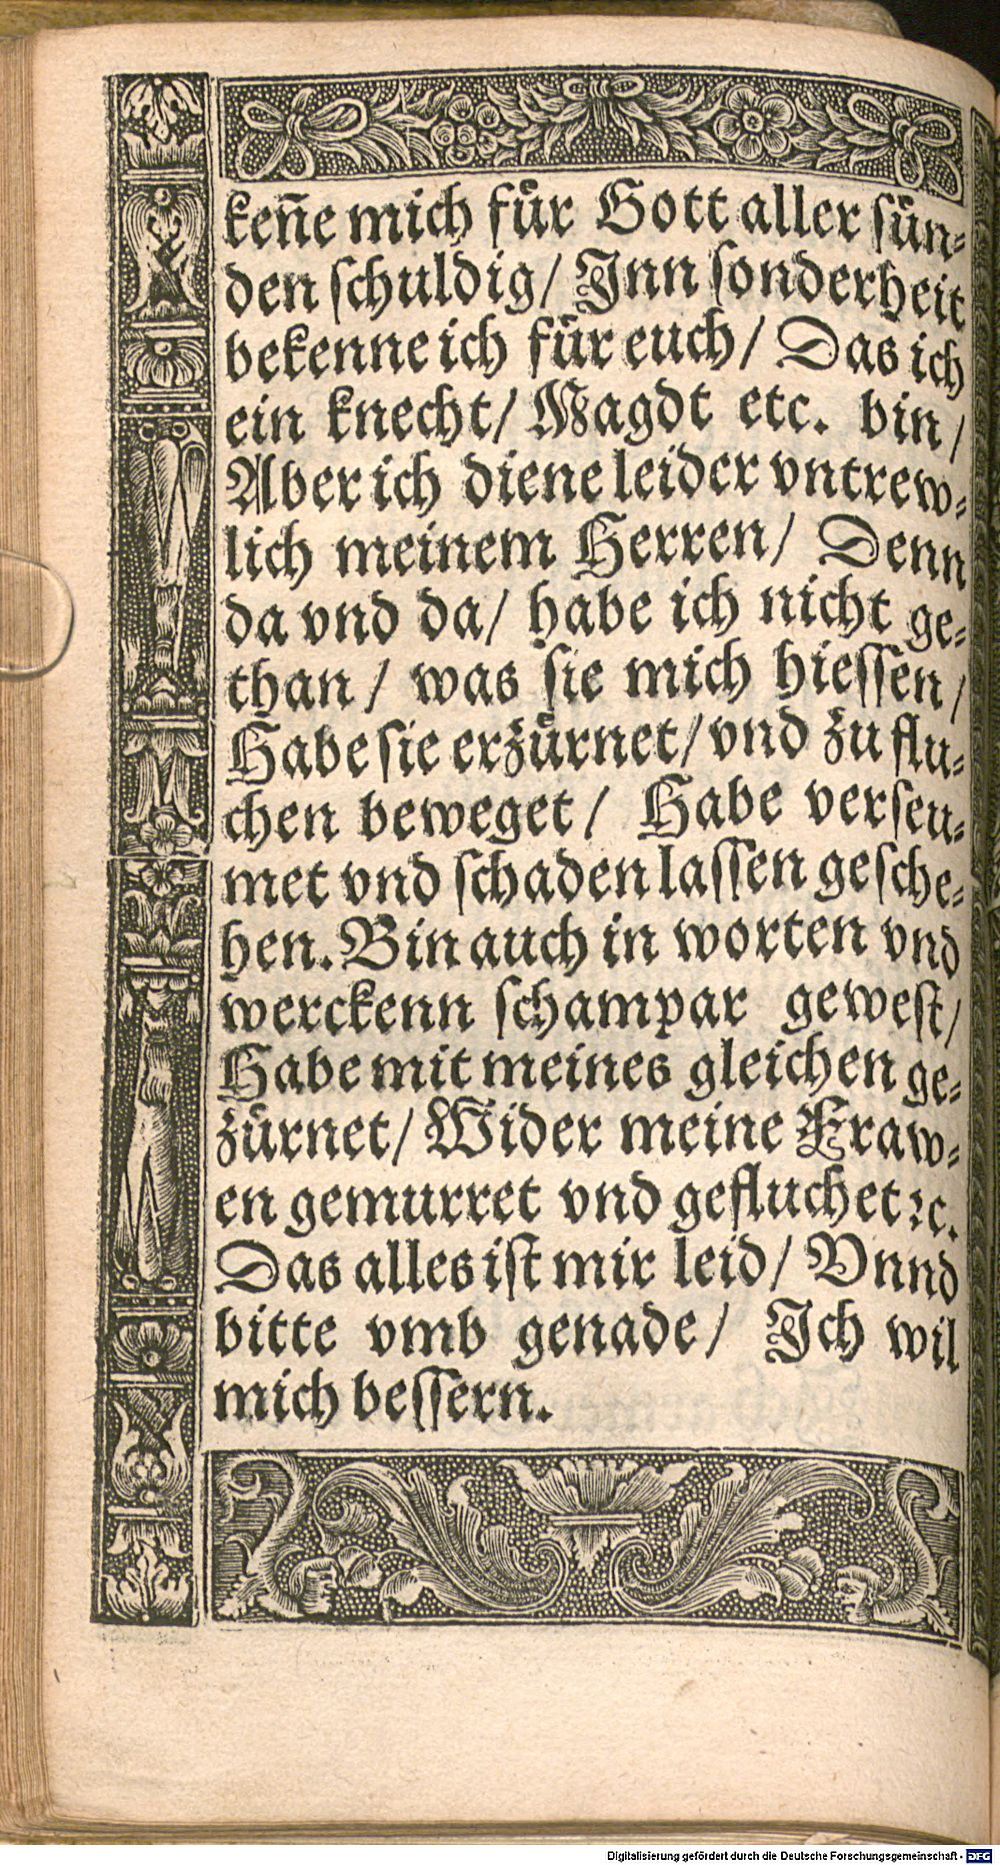 keñe mich fuͤr Gott aller suͤn⸗
den ſchuldig/ Jnn ſonderheit
bekenne ich fuͤr euch/ Das ich
ein knecht/ Magdt etc. bin/
Aber ich diene leider vntrew⸗
lich meinem Herren/ Denn
da vnd da/ habe ich nicht ge⸗
than/ was ſie mich hieſſen/
Habe ſie erzuͤrnet/ vnd zu flu⸗
chen beweget/ Habe verſeu⸗
met vnd ſchaden laſſen geſche⸗
hen. Bin auch in worten vnd
werckenn ſchampar geweſt/
Habe mit meines gleichen ge⸗
zuͤrnet/ Wider meine Fraw⸗
en gemurret vnd gefluchet ꝛc.
Das alles iſt mir leid/ Vnnd
bitte vmb genade/ Jch wil
mich beſſern.
Digitalisierung gefördert durch die Deutsche Forschungsgemeinschaft - DFG